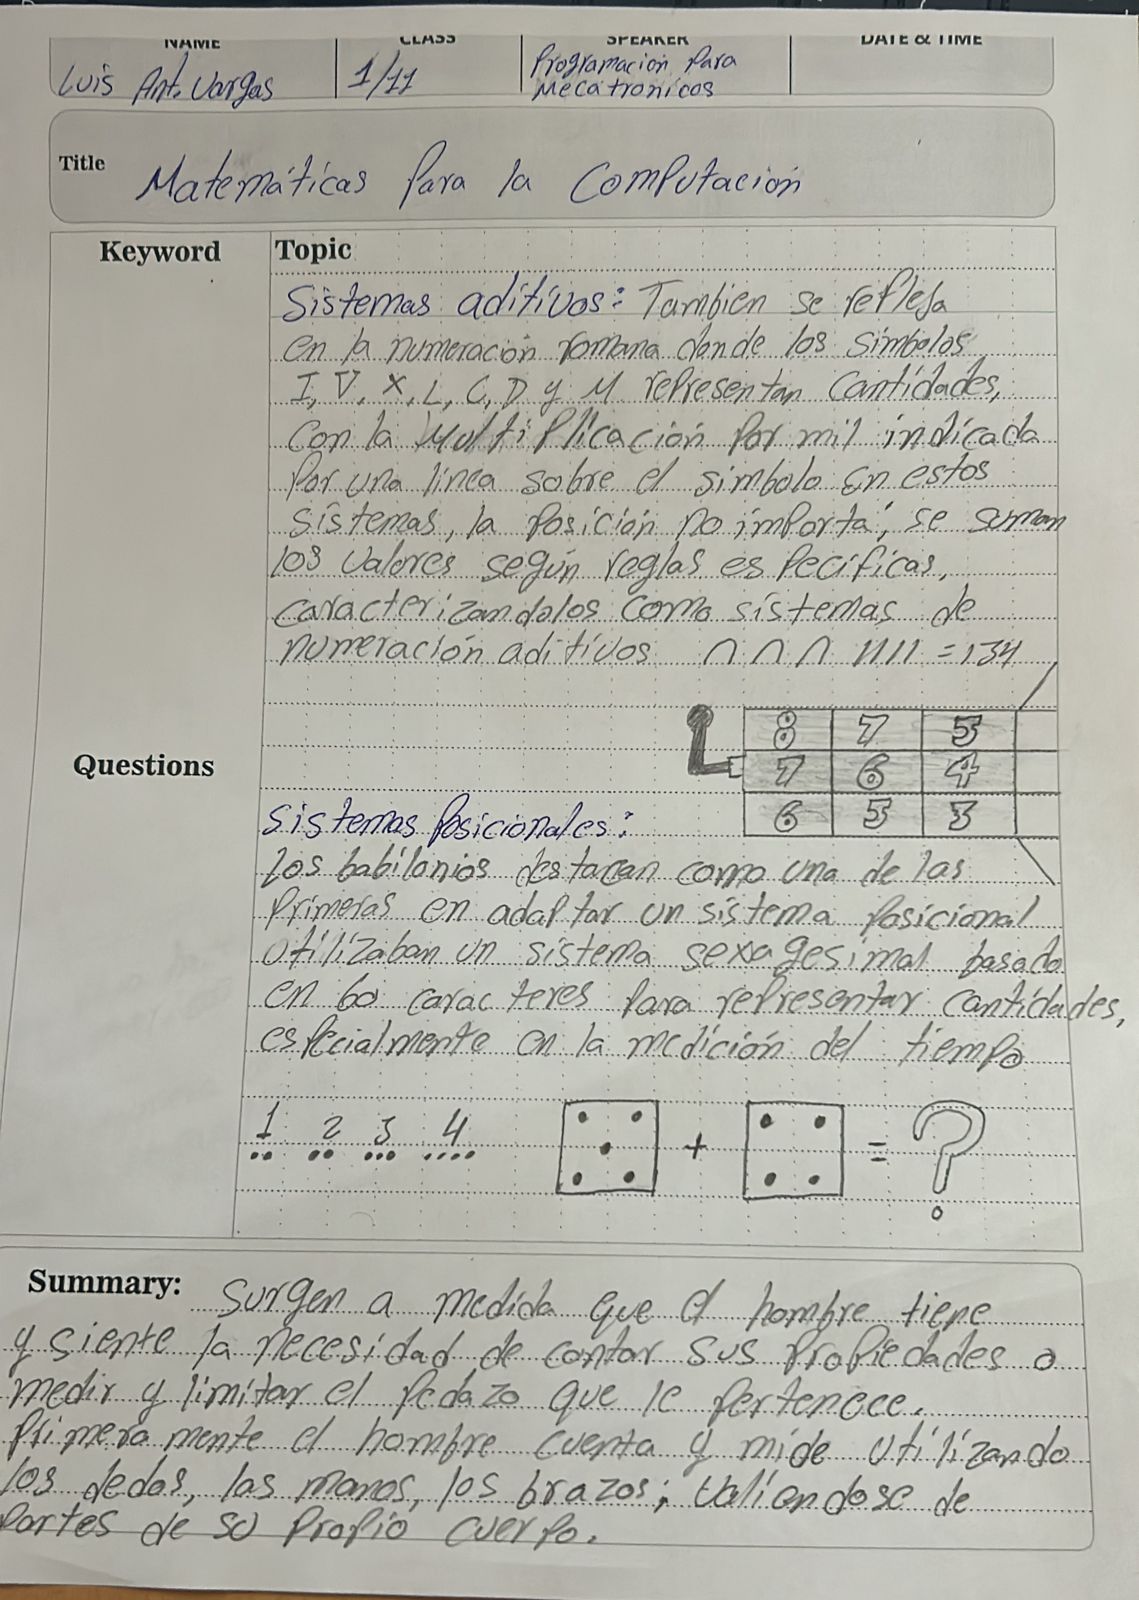 NAME CLASS SPEAKER DATE & TIME
Luis Ant. Vargas 1/11 Programacion Para
Mecatronicos
Title Matemáticas Para la Computación
Keyword Topic
Sistemas aditivos: Tambien se refleja
en la numeración romana donde los simbolos
I, V, X, L, C, D y M representan cantidades,
Con la Multiplicación Por mil indicada
Por una linea sobre el simbolo En estos
sistemas, la Posición no importa; se suman
los valores según reglas especificas,
caracterizandolos como sistemas de
numeración aditivos ∩ ∩ ∩ IIII = 134
8 7 5
Questions
7 6 4
6 5 3
Sistemas Posicionales:
Los babilonios destacan como una de las
Primeras en adaptar un sistema Posicional
utilizaban un sistema sexagesimal basado
en 60 caracteres Para representar cantidades,
especialmente en la medición del tiempo
1 2 3 4
+ = ?
Summary: Surgen a medida que el hombre tiene
y siente la necesidad de contar sus Propiedades o
medir y limitar el Pedazo que le Pertenece.
Primeramente el hombre cuenta y mide utilizando
los dedos, las manos, los brazos; valiendose de
Partes de su Propio cuerpo.